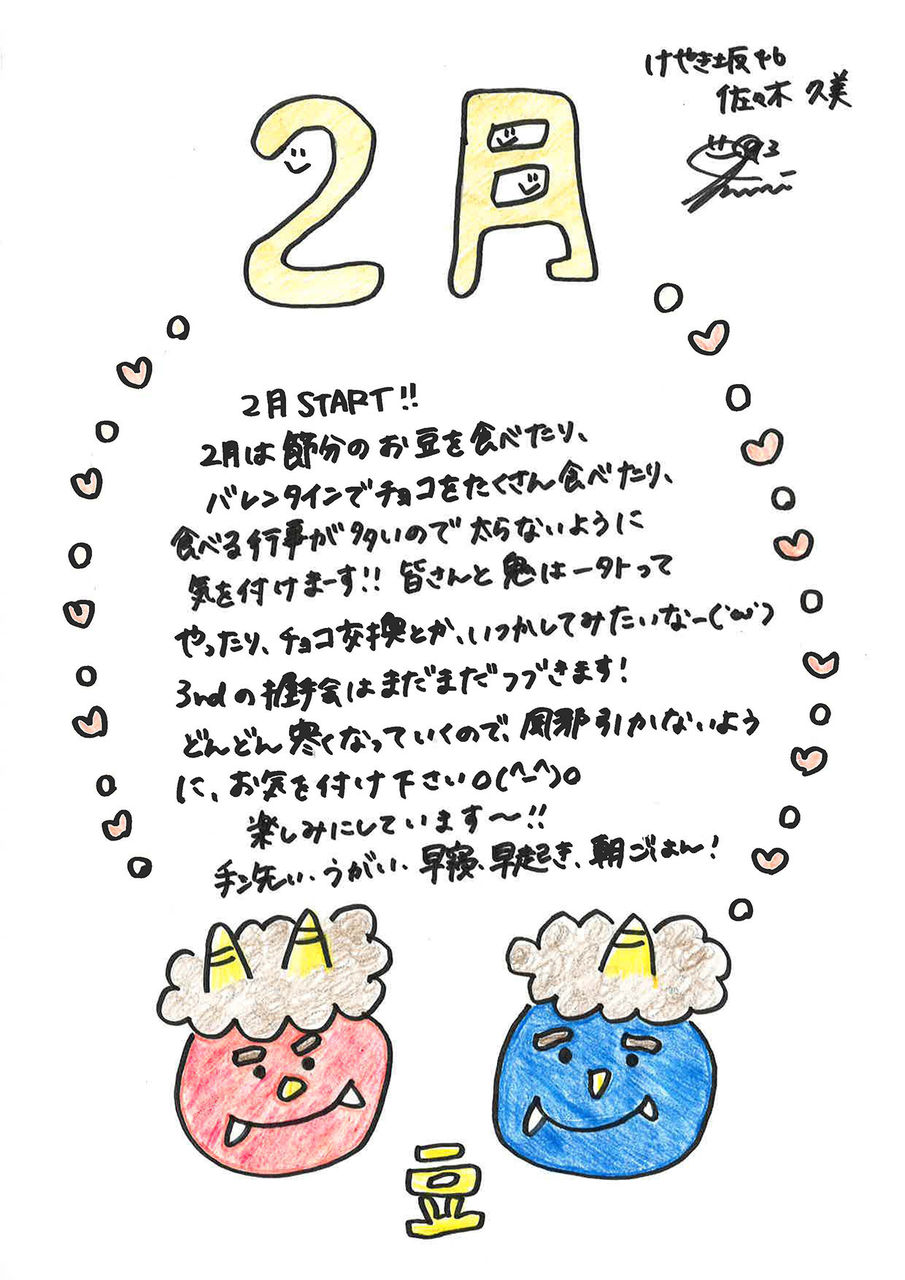 けやき坂46
佐々木 久美
2月
2月 START!!
2月は節分のお豆を食べたり、
バレンタインでチョコをたくさん食べたり、
食べる行事が多いので太らないように
気を付けまーす!! 皆さんと鬼は一外って
やったり、チョコ交換とか、いつかしてみたいなー(´ω`)
3rdの握手会はまだまだつづきます!
どんどん寒くなっていくので、風邪引かないよう
に、お気を付け下さいo(^-^)o
楽しみにしています〜!!
手洗い、うがい、早寝、早起き、朝ごはん!
豆